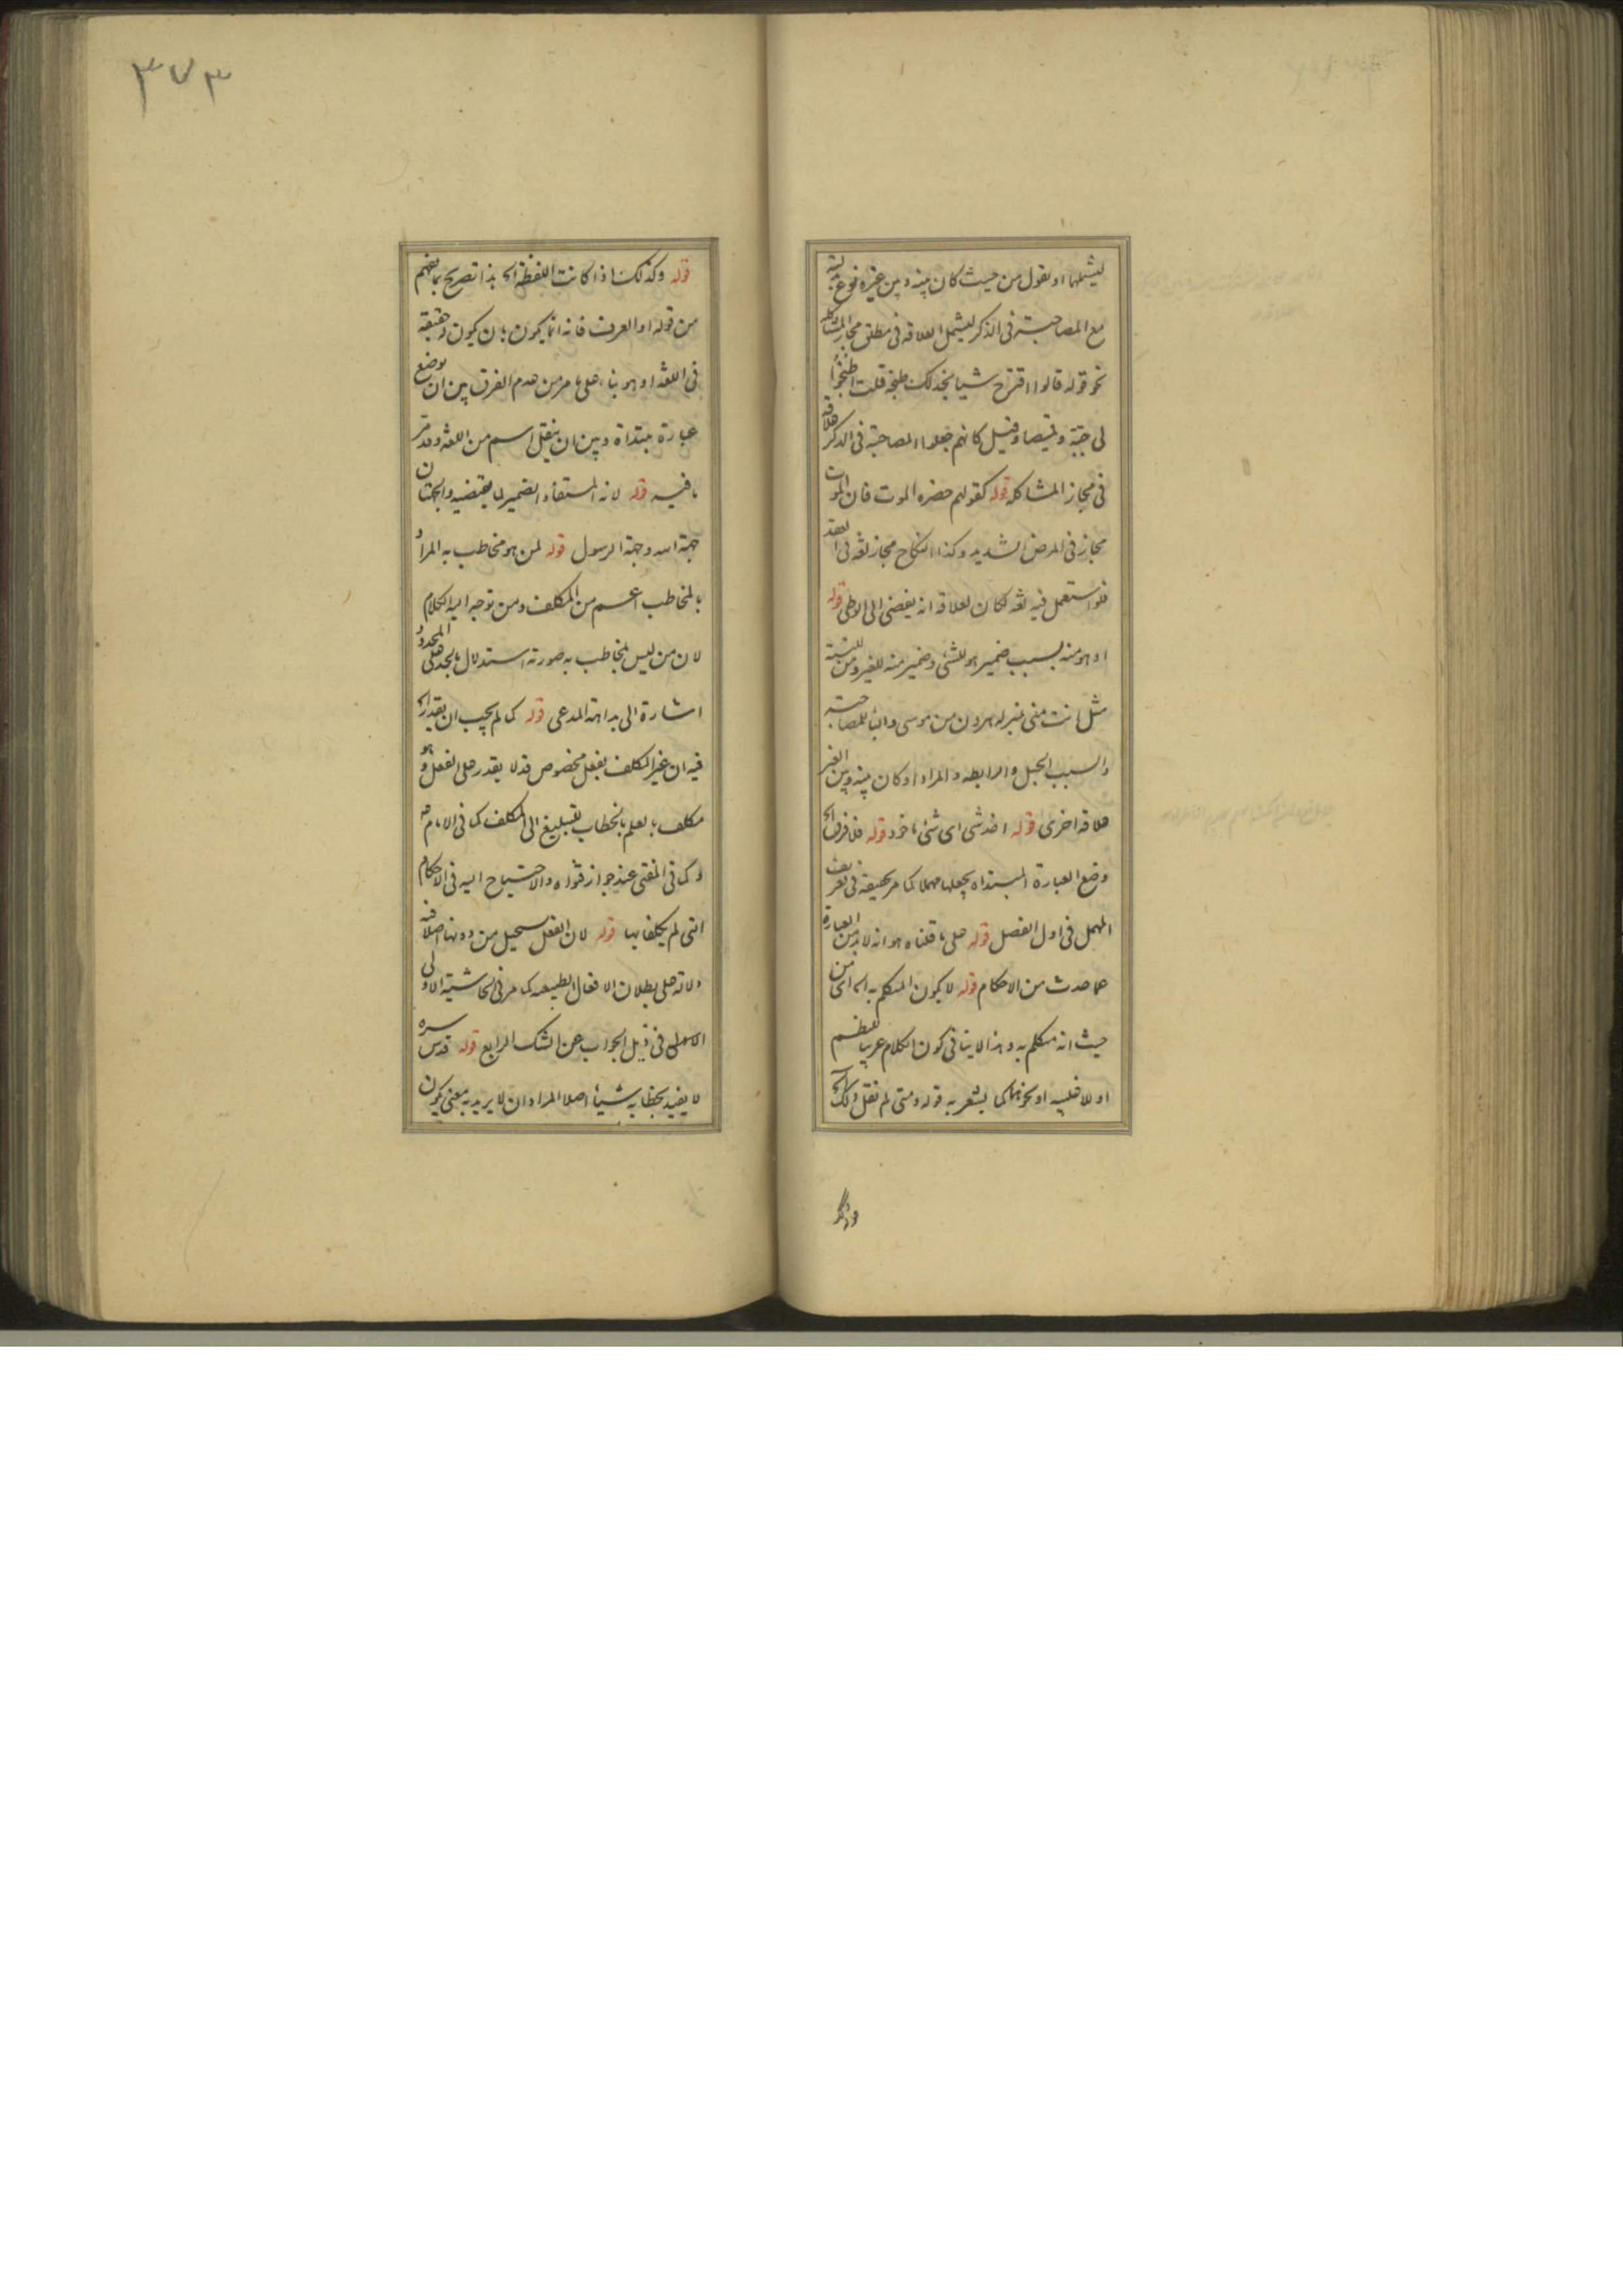 ليشملها او نقول من حيث كان بينه و بين غيره نوع
مع المصاحبة فى الذكر ليشمل العلاقه فى مطلق مجاز المشاكله
نحو قوله قالوا اقترح شيا نجد لك طبخه قلت اطبخوا
لى جبة و قميصا و قيل كانهم جعلوا المصاحبة فى الذكر علاقة
فى مجاز المشاكله قوله كقولهم حضره الموت فان الموت
مجاز فى المرض الشديد و كذا النكاح مجاز لغة فى العقد
فلو استعمل فيه لغه لكان لعلاقه انه يفضى الى الوطى قوله
او هو منه بسبب ضمير هو للشئ و ضمير منه للغير و من للنسبة
مثل انت منى بمنزله هرون من موسى و البا للمصاحبة
و السبب الحبل و الرابطه و المراد او كان بينه و بين الغير
علاقه اخرى قوله اخذ شى اى شئ ماخوذ قوله فلا فرق الخ
وضع العبارة المبتداه يجعلها مهملا كما مر تحقيقه فى تعريف
المهمل فى اول الفصل قوله على ما قلناه هو انه لا بد من العبارة
عما حدث من الاحكام قوله لا يكون المتكلم به الخ اى من
حيث انه متكلم به و هذا لا ينافى كون الكلام عربيا
او لاغلبيه او نحوهما كما يشعر به قوله و متى لم نقل ذلك الخ
٣٧٣
قوله و كذلك اذا كانت اللفظة الخ هذا تصريح بما يفهم
من قوله او العرف فانه انما يكون بان يكون حقيقة
فى اللغه او هو بناء على ما مر من عدم الفرق بين ان يوضع
عبارة مبتداة و بين ان ينقل اسم من اللغه و قد مر
ما فيه قوله لانه المستفاد الضمير لما يقتضيه و الجهتان
جهة الله و جهة الرسول قوله لمن هو مخاطب به المراد
بالمخاطب اعم من المكلف و من توجه اليه الكلام
لان من ليس بمخاطب به صورته استدلال بالحد على المحدود
اشارة الى بداهة المدعى قوله كما لم يجب ان يقدر الخ
فيه ان غير المكلف بفعل مخصوص قد لا يقدر على الفعل و هو
مكلف بالعلم بالخطاب لتبليغ الى المكلف كما فى الامام
و كما فى المفتى عند جواز فتواه و الاحتياج اليه فى الاحكام
التى لم يكلف بها قوله لان الفعل يستحيل من دونها اصلا فيه
دلالة على بطلان الافعال الطبيعه كما مر فى الحاشية الاولى
الاسهلى فى ذيل الجواب عن الشك الرابع قوله قدس سره
لا يفيد بخطابه شيئا اصلا المراد ان لا يريد به معنى يكون